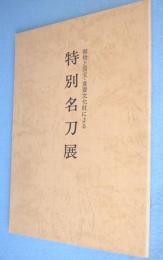 御物と国宝・重要文化財による
特別名刀展